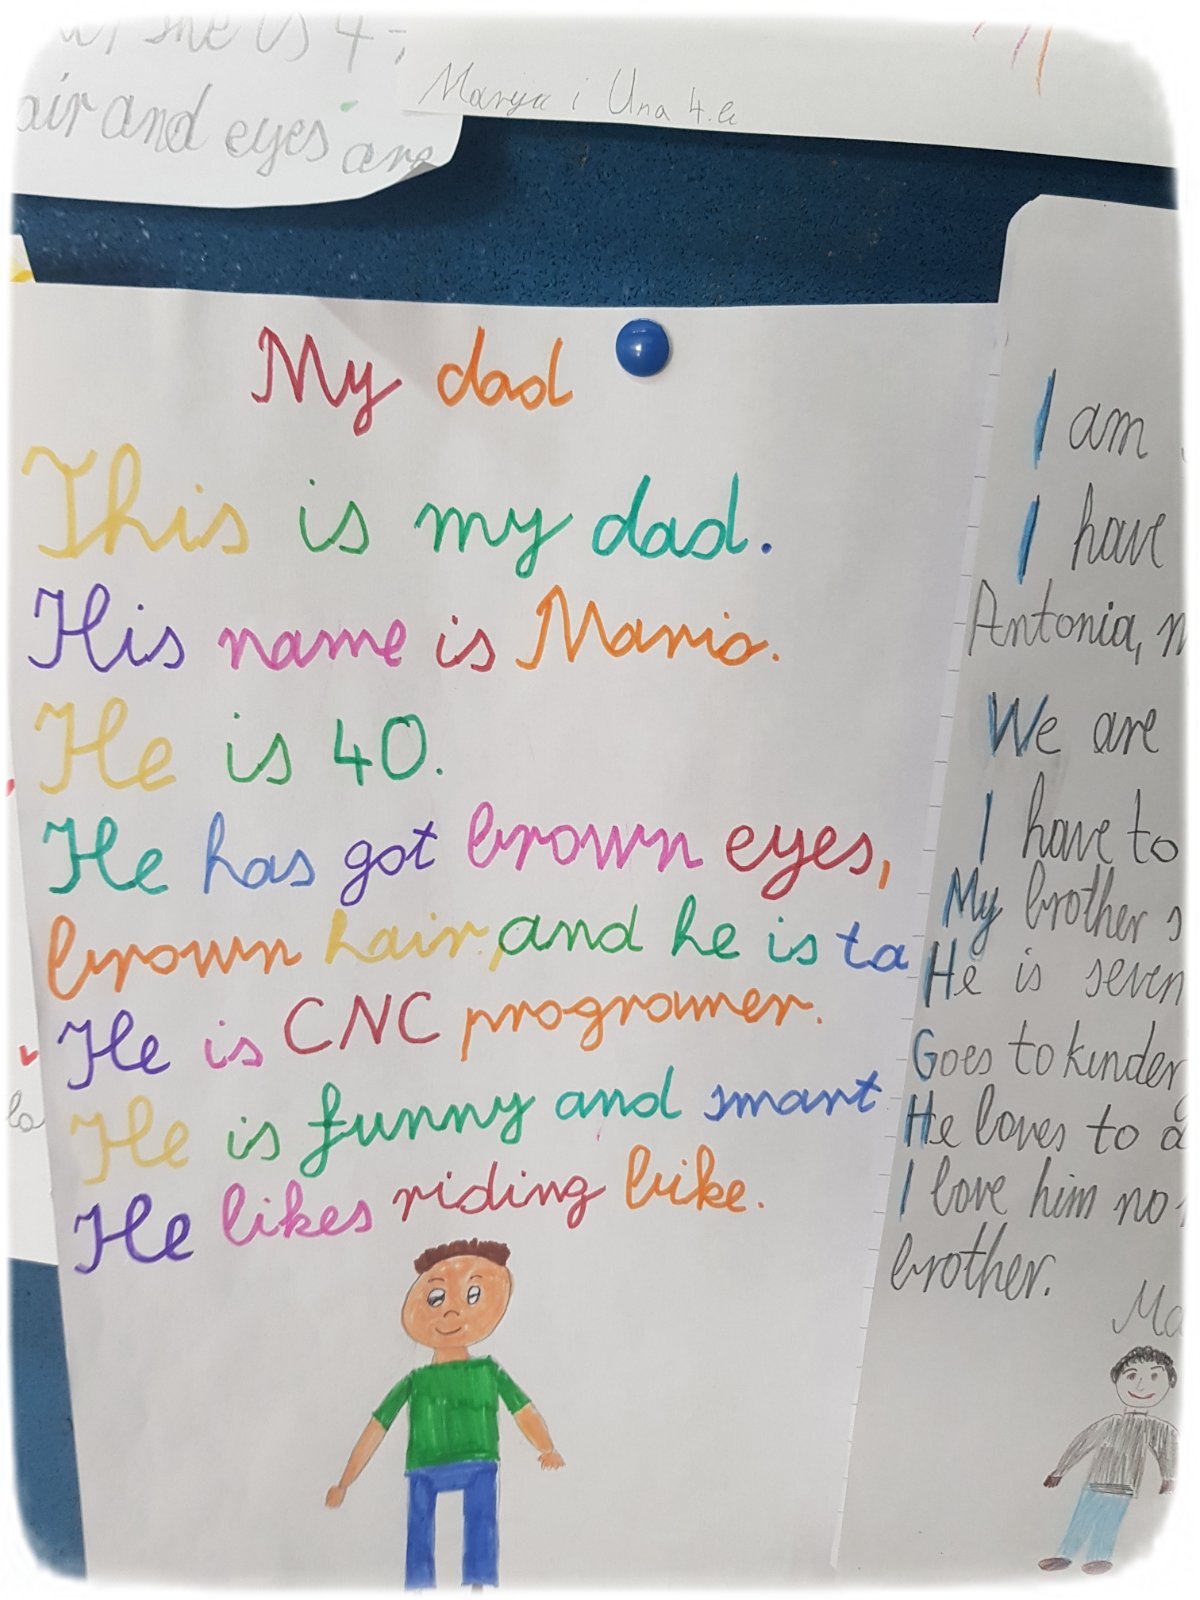 she is 4
air and eyes are
Marija i Una 4.a
My dad
This is my dad.
His name is Mario.
He is 40.
He has got brown eyes,
brown hair, and he is ta
He is CNC programer.
He is funny and smart
He likes riding bike.
I am
I have
Antonia,
We are
I have to
My brother s
He is seven
Goes to kinder
He loves to
I love him no
brother.
Ma